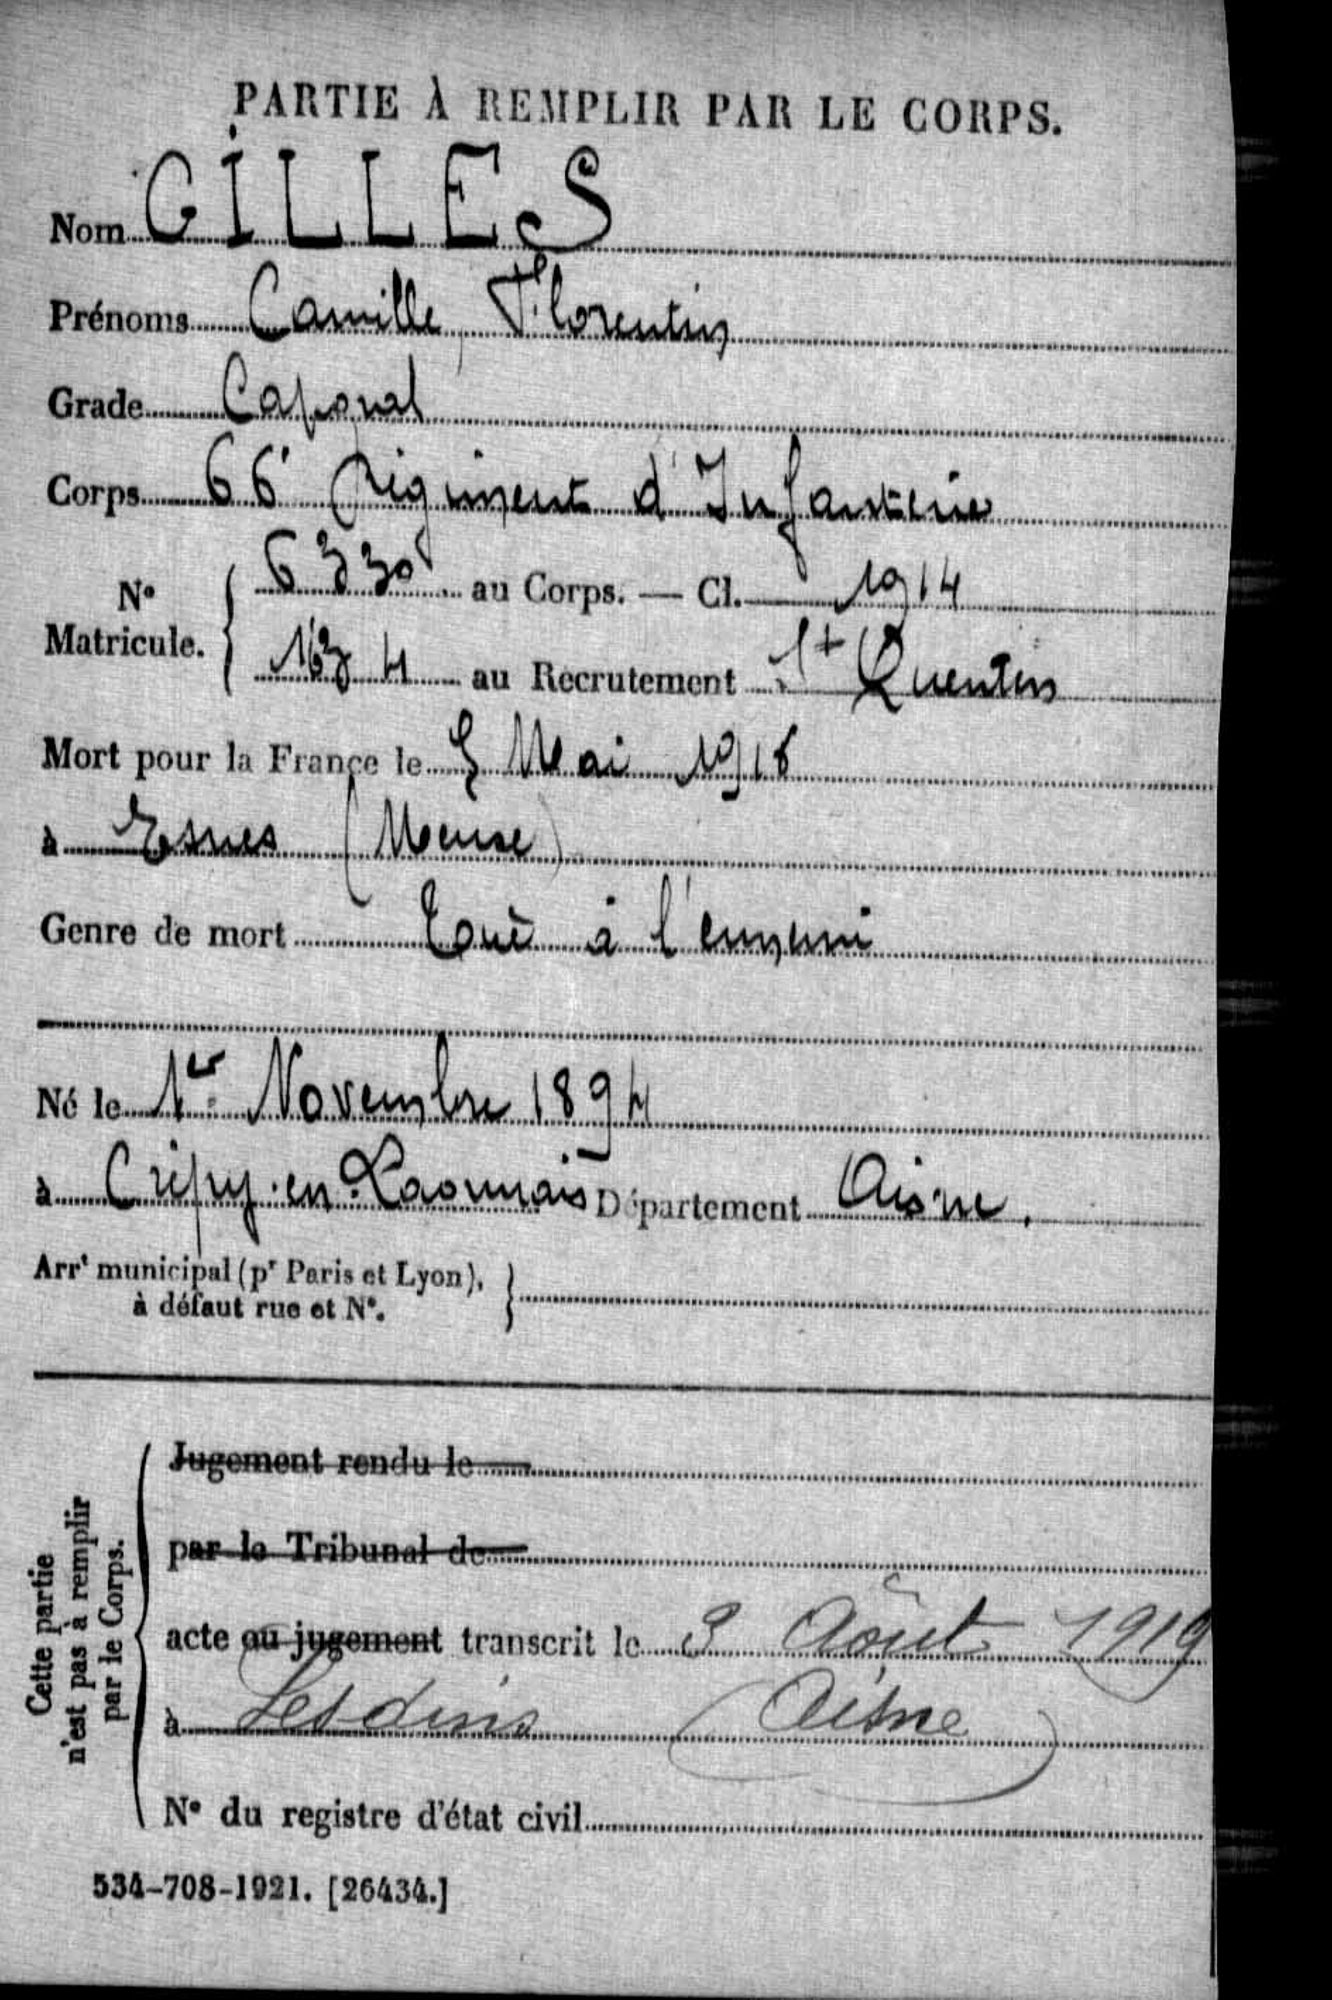 PARTIE À REMPLIR PAR LE CORPS.
Nom GILLES
Prénoms Camille, Florentin
Grade Caporal
Corps 66e Régiment d'Infanterie
No Matricule. 6330 au Corps. — Cl. 1914
1634 au Recrutement St Quentin
Mort pour la France le 5 Mai 1916
à Esnes (Meuse)
Genre de mort Tué à l'ennemi
Né le 1er Novembre 1894
à Crépy-en-Laonnais Département Aisne.
Arrt municipal (pr Paris et Lyon),
à défaut rue et No.
Cette partie
n'est pas à remplir
par le Corps.
Jugement rendu le
par le Tribunal de
acte ou jugement transcrit le 3 Août 1919
à Lesdins (Aisne)
No du registre d'état civil
534-708-1921. [26434.]